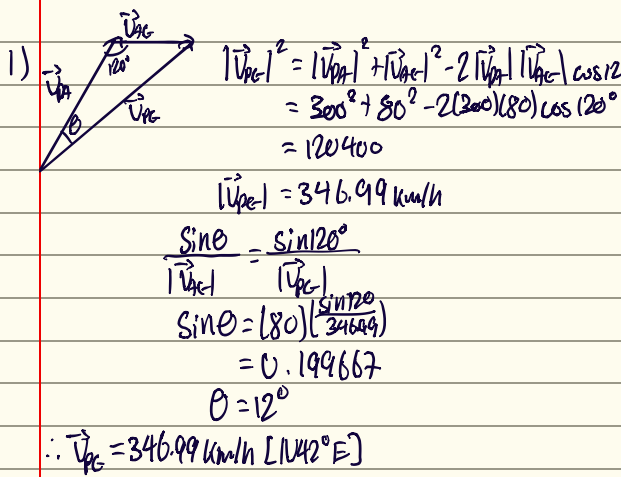 1)
V⃗AG
120°
V⃗PA
V⃗PG
θ
|V⃗PG|² = |V⃗PA|² + |V⃗AG|² - 2|V⃗PA| |V⃗AG| cos12
= 300² + 80² - 2(300)(80) cos 120°
= 120400
|V⃗PG| = 346.99 km/h
sinθ/|V⃗AG| = sin120°/|V⃗PG|
sinθ = (80)(sin120/346.99)
= 0.199667
θ = 12°
∴ V⃗PG = 346.99 km/h [N42°E]